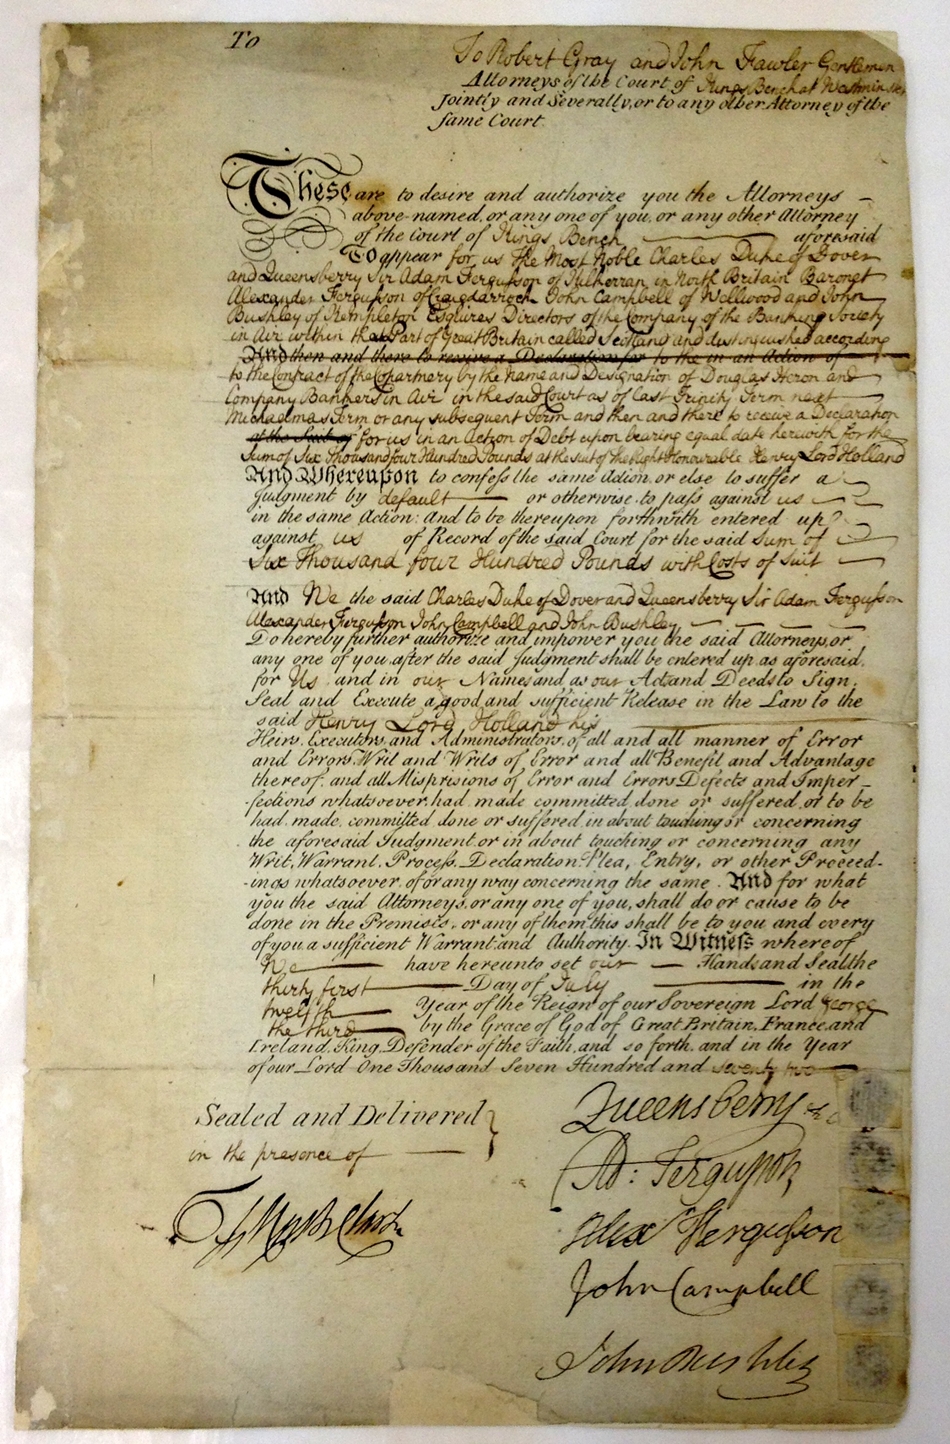 To
To Robert Gray and John Fawler Gentlemen
Attorneys of the Court of Kings Bench at Westminster
Jointly and Severally, or to any other Attorney of the
same Court
These are to desire and authorize you the Attorneys
above-named, or any one of you, or any other Attorney
of the Court of Kings Bench aforesaid
To appear for us the Most Noble Charles Duke of Dover
and Queensberry Sir Adam Fergusson of Kilkerran in North Britain Baronet
Alexander Fergusson of Craigdarroch John Campbell of Wellwood and John
Bushby of Kempleton Esquires Directors of the Company of the Banking Society
in Air within that Part of Great Britain called Scotland and distinguished according
And then and there to receive a Declaration for to the in an Action of
to the Contract of the Copartnery by the Name and Designation of Douglas Heron and
Company Bankers in Air in the said Court as of last Trinity Term next
Michaelmas Term or any subsequent Term and then and there to receive a Declaration
at the Suit of for us in an Action of Debt upon bearing equal date herewith for the
Sum of Six Thousand four Hundred Pounds at the suit of the Right Honourable Henry Lord Holland
And Whereupon to confess the same Action, or else to suffer a
Judgment by default or otherwise to pass against us
in the same Action: And to be thereupon forthwith entered up
against us of Record of the said Court for the said Sum of
Six Thousand four Hundred Pounds with Costs of Suit
And We the said Charles Duke of Dover and Queensberry Sir Adam Fergusson
Alexander Fergusson John Campbell and John Bushby
Do hereby further authorize and impower you the said Attorneys, or
any one of you, after the said Judgment shall be entered up as aforesaid,
for Us and in our Names and as our Act and Deeds to Sign,
Seal and Execute a good and sufficient Release in the Law to the
said Henry Lord Holland his
Heirs, Executors, and Administrators, of all and all manner of Error
and Errors, Writ and Writs of Error and all Benefit and Advantage
thereof, and all Misprisions of Error and Errors, Defects and Imper-
fections whatsoever, had made committed, done or suffered, or to be
had, made, committed done or suffered, in about touching or concerning
the aforesaid Judgment, or in about touching or concerning any
Writ, Warrant, Process, Declaration, Plea, Entry, or other Proceed-
-ings whatsoever, of or any way concerning the same. And for what
you the said Attorneys, or any one of you, shall do or cause to be
done in the Premises, or any of them, this shall be to you and every
of you, a sufficient Warrant and Authority. In Witness whereof
We have hereunto set our Hands and Seal the
thirty first Day of July in the
twelfth Year of the Reign of our Sovereign Lord George
the third by the Grace of God of Great Britain, France, and
Ireland, King, Defender of the Faith, and so forth, and in the Year
of our Lord One Thousand Seven Hundred and seventy two
Sealed and Delivered
in the presence of
Queensberry
Ad: Fergusson
Alexr Fergusson
John Campbell
John Bushby